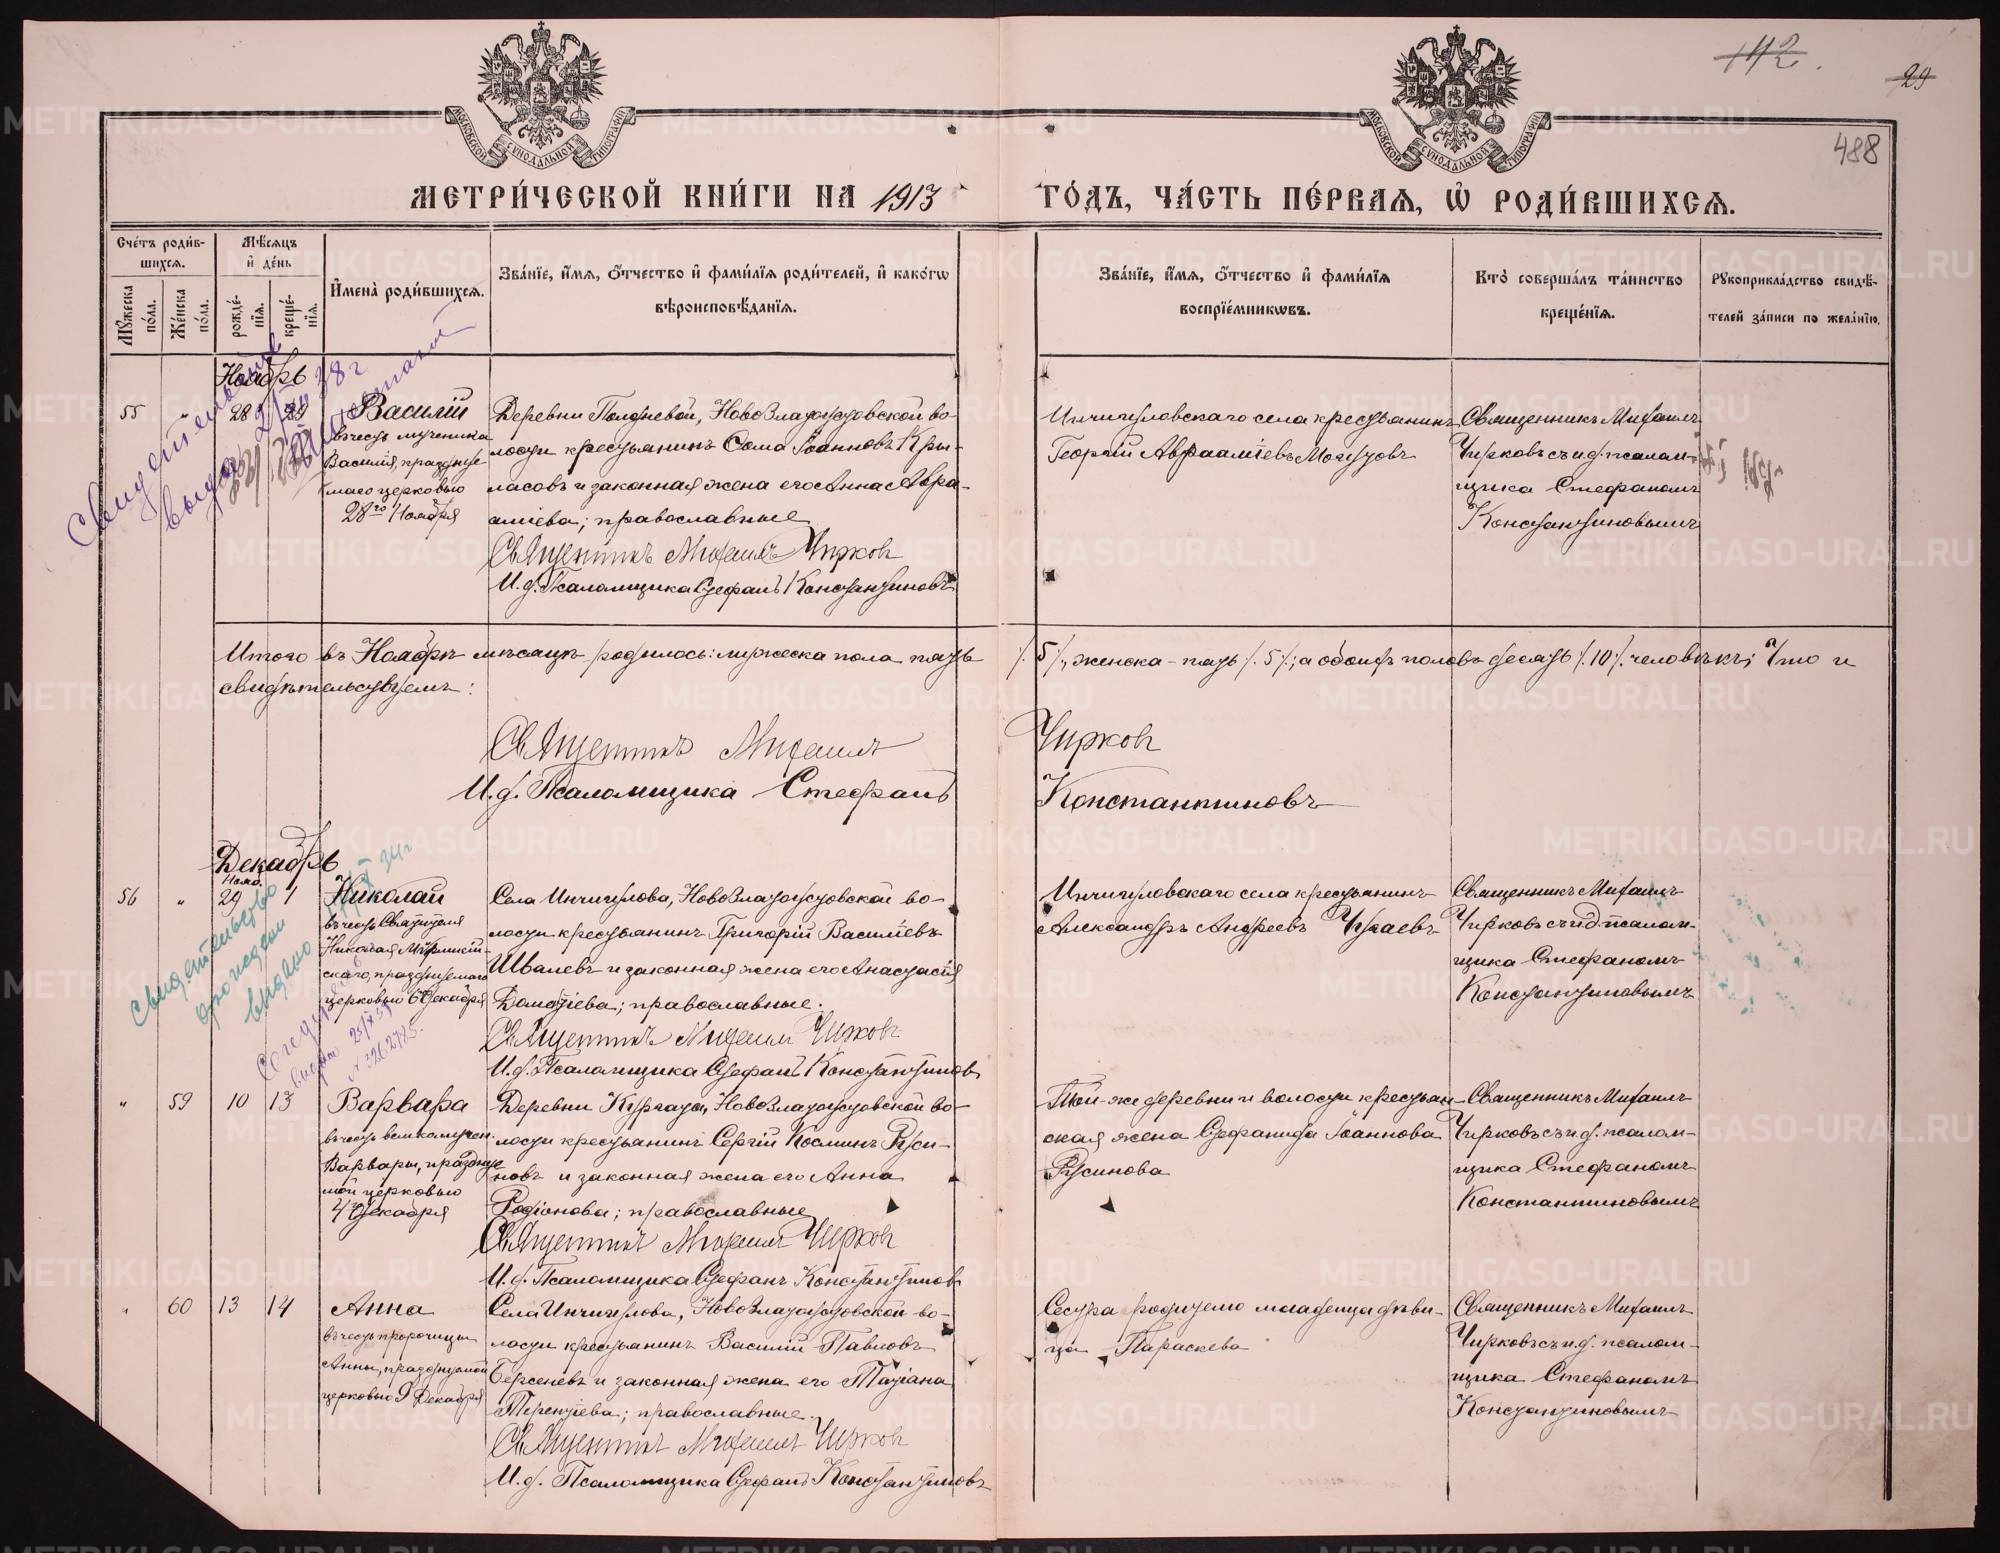 142.
29
488
МОСКОВСКОЙ СУНОДАЛЬНОЙ ТИПОГРАФІИ
МОСКОВСКОЙ СУНОДАЛЬНОЙ ТИПОГРАФІИ
МЕТРИ́ЧЕСКОЙ КНИ́ГИ НА 1913 ГО́ДЪ, ЧА́СТЬ ПЕ́РВАѦ, Ѡ҆ РОДИ́ВШИХСѦ.
Сче́тъ роди́в-
шихсѧ.
Мѣ́сѧцъ
и҆ де́нь
Мꙋ́жеска
по́ла.
Же́нска
по́ла.
рожде́-
нїѧ.
креще́-
нїѧ.
И҆мена̀ роди́вшихсѧ.
Зва́нїе, и҆́мѧ, ѻ҆́тчество и҆ фами́лїѧ роди́телей, и҆ како́гѡ
вѣроисповѣ́данїѧ.
Зва́нїе, и҆́мѧ, ѻ҆́тчество и҆ фами́лїѧ
воспрїе́мникѡвъ.
Кто̀ соверша́лъ та́инство
креще́нїѧ.
Рꙋкоприкла́дство свидѣ́-
телей за́писи по жела́нїю.
Ноябрь
55 " 28 29 Василій
въ честь мученика
Василія, празднуе-
маго церковью
28го Ноября
Деревни Полдневой, Ново-Златоустовской во-
лости крестьянинъ Ѳома Іоанновъ Кры-
ласовъ и законная жена его Анна Авра-
аміева; православные
Священникъ Михаилъ Чирковъ
И. д. Псаломщика Стефанъ Константиновъ
Инчигуловскаго села крестьянинъ
Георгій Авраамíевъ Могутовъ
Священникъ Михаилъ
Чирковъ съ и. д. псалом-
щика Стефаномъ
Константиновымъ
Свидетельство
выдано
Итого въ Ноябрѣ мѣсяцѣ родилось: мужеска пола пять /. 5 /., женска - пять /. 5 /.; а обоихъ половъ десять /. 10 /. человѣкъ; Что и
свидѣтельствуемъ:
Священникъ Михаилъ Чирковъ
И. д. Псаломщика Стефанъ Константиновъ
Декабрь
Нояб.
56 " 29 1 Николай
въ честь Святителя
Николая Мѵрликій-
скаго, празднуемаго
церковью 6 Декабря
Села Инчигулова, Ново-Златоустовской во-
лости крестьянинъ Григорій Василíевъ
Швалевъ и законная жена его Анастасія
Доматíева; православные.
Священникъ Михаилъ Чирковъ
И. д. Псаломщика Стефанъ Константиновъ
Инчигуловскаго села крестьянинъ
Александръ Андреевъ Чугаевъ
Священникъ Михаилъ
Чирковъ съ и. д. псалом-
щика Стефаномъ
Константиновымъ
свидетельство
о рождении
выдано
" 59 10 13 Варвара
въ честь великомучен.
Варвары, праздную
мой церковью
4 Декабря
Деревни Кургата, Ново-Златоустовской во-
лости крестьянинъ Сергій Косминъ Руси-
новъ и законная жена его Анна
Родíонова; православные
Священникъ Михаилъ Чирковъ
И. д. Псаломщика Стефанъ Константиновъ
Той-же деревни и волости крестьян-
ская жена Стефанида Іоаннова
Русинова
Священникъ Михаилъ
Чирковъ съ и. д. псалом-
щика Стефаномъ
Константиновымъ
" 60 13 14 Анна
въ честь пророчицы
Анны, празднуемой
церковью 9 Декабря
Села Инчигулова, Ново-Златоустовской во-
лости крестьянинъ Василій Павловъ
Берсеневъ и законная жена его Татіана
Терентíева; православные.
Священникъ Михаилъ Чирковъ
И. д. Псаломщика Стефанъ Константиновъ
Сестра родителю младенца дѣви-
ца Параскева
Священникъ Михаилъ
Чирковъ съ и. д. псалом-
щика Стефаномъ
Константиновымъ
METRIKI.GASO-URAL.RU